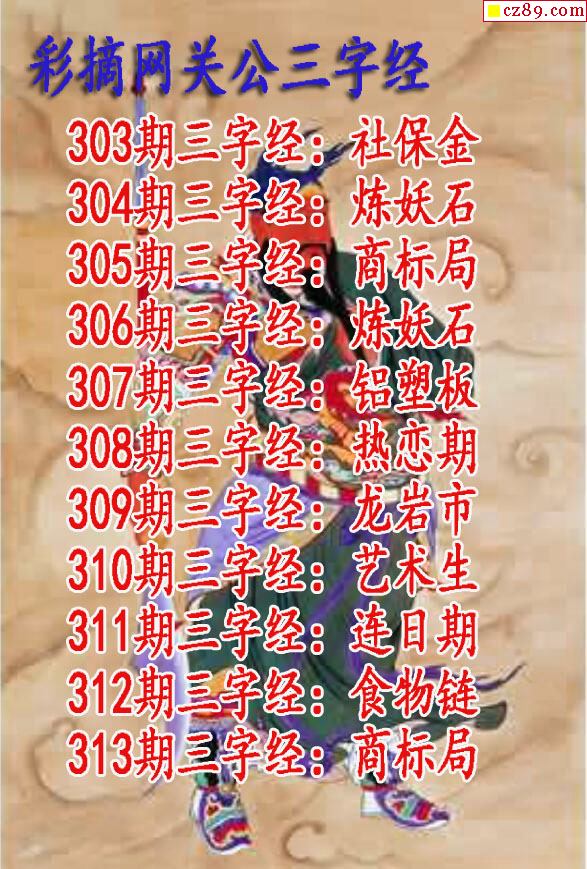 cz89.com
彩摘网关公三字经
303期三字经：社保金
304期三字经：炼妖石
305期三字经：商标局
306期三字经：炼妖石
307期三字经：铝塑板
308期三字经：热恋期
309期三字经：龙岩市
310期三字经：艺术生
311期三字经：连日期
312期三字经：食物链
313期三字经：商标局